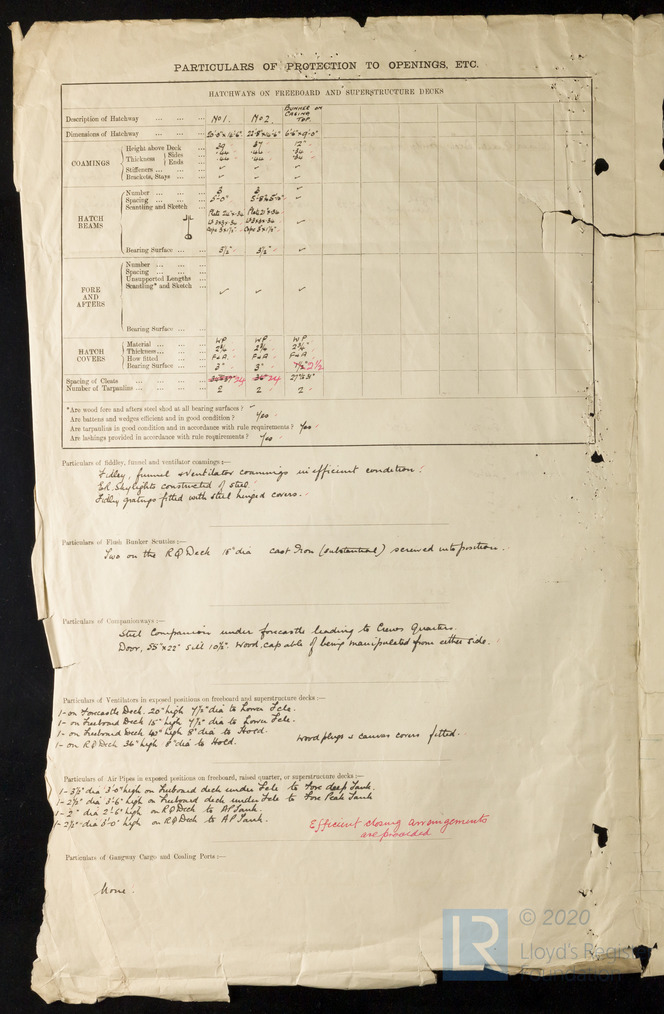 PARTICULARS OF PROTECTION TO OPENINGS, ETC.
HATCHWAYS ON FREEBOARD AND SUPERSTRUCTURE DECKS
Description of Hatchway ... ... ... No 1. No 2. BUNKER ON CASING TOP.
Dimensions of Hatchway ... ... ...
COAMINGS
Height above Deck ... 29 37 12"
Thickness { Sides ... .44 .44 .34
Ends ... .44 .44 .34
Stiffeners ... ... ... ✓ ✓ ✓
Brackets, Stays ... ... ✓ ✓ ✓
HATCH BEAMS
Number ... ... ... 3 3 ✓
Spacing ... ... ... 5'-0"
Scantling and Sketch
Bearing Surface ... ... 3½" 3½" ✓
FORE AND AFTERS
Number ... ... ...
Spacing ... ... ...
Unsupported Lengths
Scantling* and Sketch ✓ ✓ ✓
Bearing Surface ... ...
HATCH COVERS
Material ... ... ... WP WP WP
Thickness ... ... ... 2¾ 2¾ 2¾"
How fitted ... ... F&A F&A F&A
Bearing Surface ... ... 3" 3" 2½
Spacing of Cleats ... ... ... 24 24
Number of Tarpaulins ... ... ... 2 2 2
*Are wood fore and afters steel shod at all bearing surfaces ? ✓
Are battens and wedges efficient and in good condition ? Yes
Are tarpaulins in good condition and in accordance with rule requirements ? Yes
Are lashings provided in accordance with rule requirements ? Yes
Particulars of fiddley, funnel and ventilator coamings :—
Fidley, funnel & ventilator coamings in efficient condition.
E.R. Skylights constructed of steel.
Fidley gratings fitted with steel hinged covers.
Particulars of Flush Bunker Scuttles :—
Two on the R Q Deck 18" dia cast Iron (substantial) screwed into position.
Particulars of Companionways :—
Steel Companion under forecastle leading to Crews Quarters.
Door, 55" x 22" Sill 10½". Wood, capable of being manipulated from either side.
Particulars of Ventilators in exposed positions on freeboard and superstructure decks :—
1- on Forecastle Deck. 20" high 7½" dia to Lower Fcle.
1- on Freeboard Deck 15" high 7½" dia to Lower Fcle.
1- on Freeboard Deck 43" high 8" dia to Hold.
1- on R Q Deck 36" high 8" dia to Hold. Wood plugs & canvas covers fitted.
Particulars of Air Pipes in exposed positions on freeboard, raised quarter, or superstructure decks :—
1- 3½" dia 3'-0" high on Freeboard deck under Fcle to Fore deep Tank.
1- 2½" dia 3'-6" high on Freeboard deck under Fcle to Fore Peak Tank
1- 2" dia 2'-6" high on R Q Deck to AP Tank.
1- 2½" dia 3'-0" high on R Q Deck to A P Tank.
Efficient closing arrangements
are provided
Particulars of Gangway Cargo and Coaling Ports :—
None.
LR © 2020
Lloyd's Register
Foundation